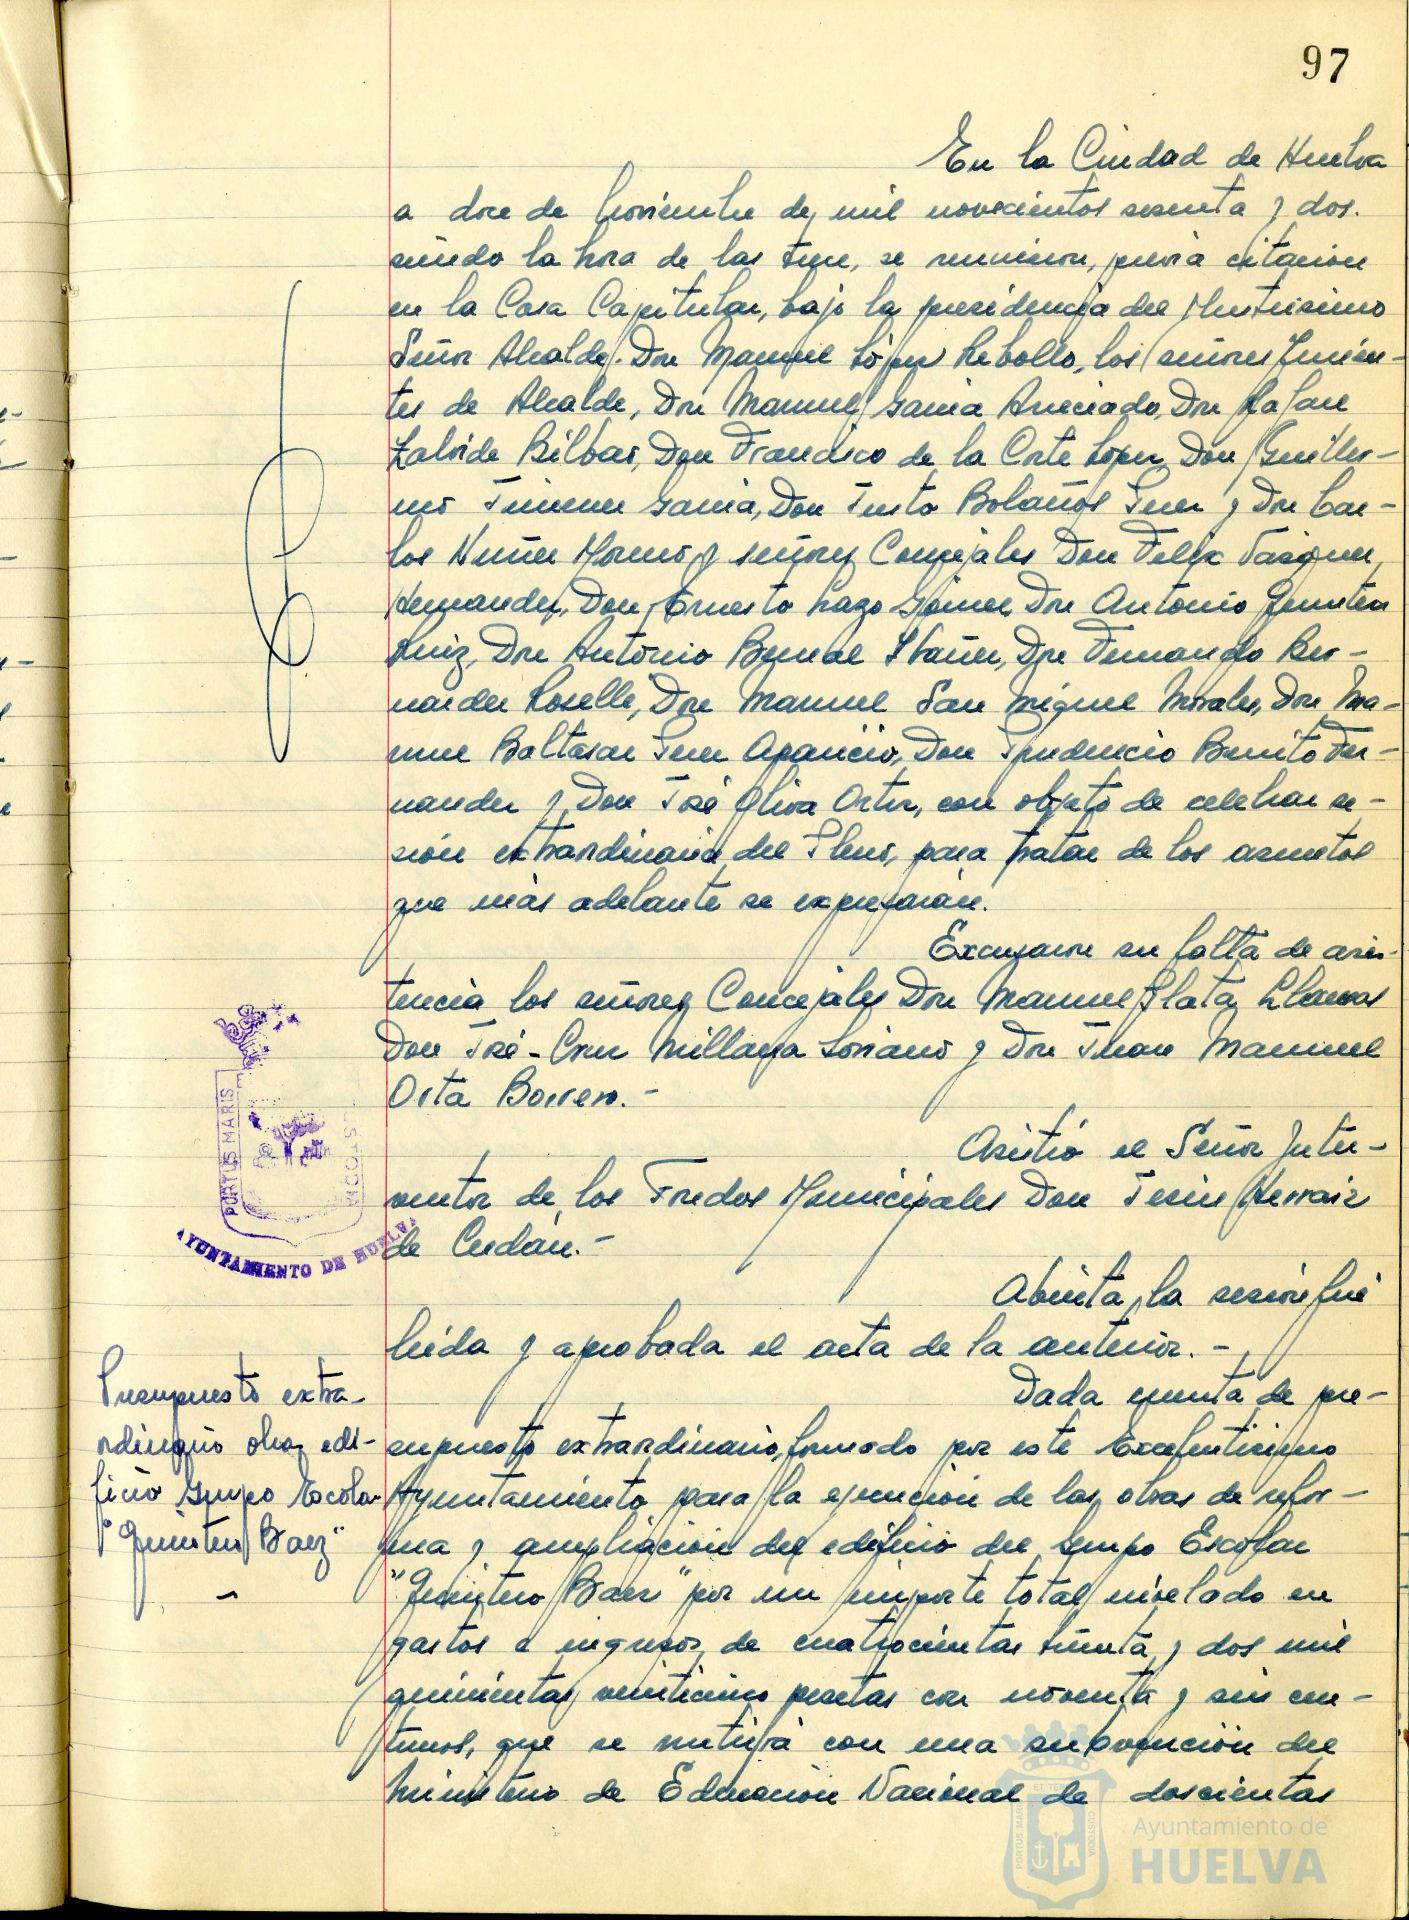 97
En la Ciudad de Huelva
a doce de Noviembre de mil novecientos sesenta y dos.
siendo la hora de las trece, se reunieron, previa citación
en la Casa Capitular, bajo la presidencia del Ilustrisimo
Señor Alcalde. Don Manuel López Rebollo, los señores Tenien-
tes de Alcalde, Don Manuel Garcia Anreciado, Don Rafael
Zalvide Bilbao, Don Francisco de la Corte López, Don Guiller-
mo Jimenez Garcia, Don Justo Bolaños Perez y Don Car-
los Nuñez Moreno y señores Concejales Don Felix Vazquez
Hernandez, Don Ernesto Lazo Gómez, Don Antonio Quintero
Ruiz, Don Antonio Bernal Ibañez, Don Fernando Ber-
nardez Roselló, Don Manuel San Miguel Morales, Don Ma-
nuel Baltasar Perez Aparicio, Don Prudencio Benito Fer-
nandez y Don José Oliva Ortiz, con objeto de celebrar se-
sión extraordinaria del Pleno, para tratar de los asuntos
que más adelante se expresarán.
Excusaron su falta de asis-
tencia los señores Concejales Don Manuel Plata Llamas
Don José-Cruz Millaya Soriano y Don Juan Manuel
Orta Borrero.-
Asistió el Señor Inter-
ventor de los Fondos Municipales Don Jesús Herraiz
de Cerdán.-
PORTUS MARIS
CUSTODIA
AYUNTAMIENTO DE HUELVA
Abierta la sesión fué
leida y aprobada el acta de la anterior.-
Presupuesto extra-
ordinario obras edi-
ficio Grupo Escolar
"Quintero Baez"
-
Dada cuenta de pre-
supuesto extraordinario, formado por este Excelentisimo
Ayuntamiento para la ejecución de las obras de refor-
ma y ampliación del edificio del Grupo Escolar
"Quintero Baez" por un importe total nivelado en
gastos e ingresos de cuatrocientas treinta y dos mil
quinientas veinticinco pesetas con noventa y seis cen-
timos, que se nutrirá con una subvención del
Ministerio de Educación Nacional de doscientas
Ayuntamiento de
HUELVA